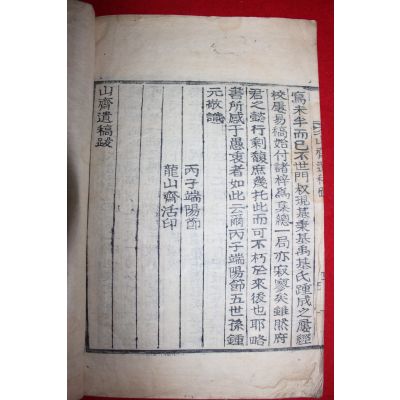 寫未半而已不世門叔現基秉基禹基氏踵成之屢經
校屢易稿始付諸梓爲弁總一局亦寂寥矣雖然府
君之懿行剩馥庶幾托此而可不朽於來後也耶略
書所感于愚衷者如此云爾丙子端陽節五世孫鍾
元敬識
丙子端陽節
龍山齋活印
山齋遺稿跋